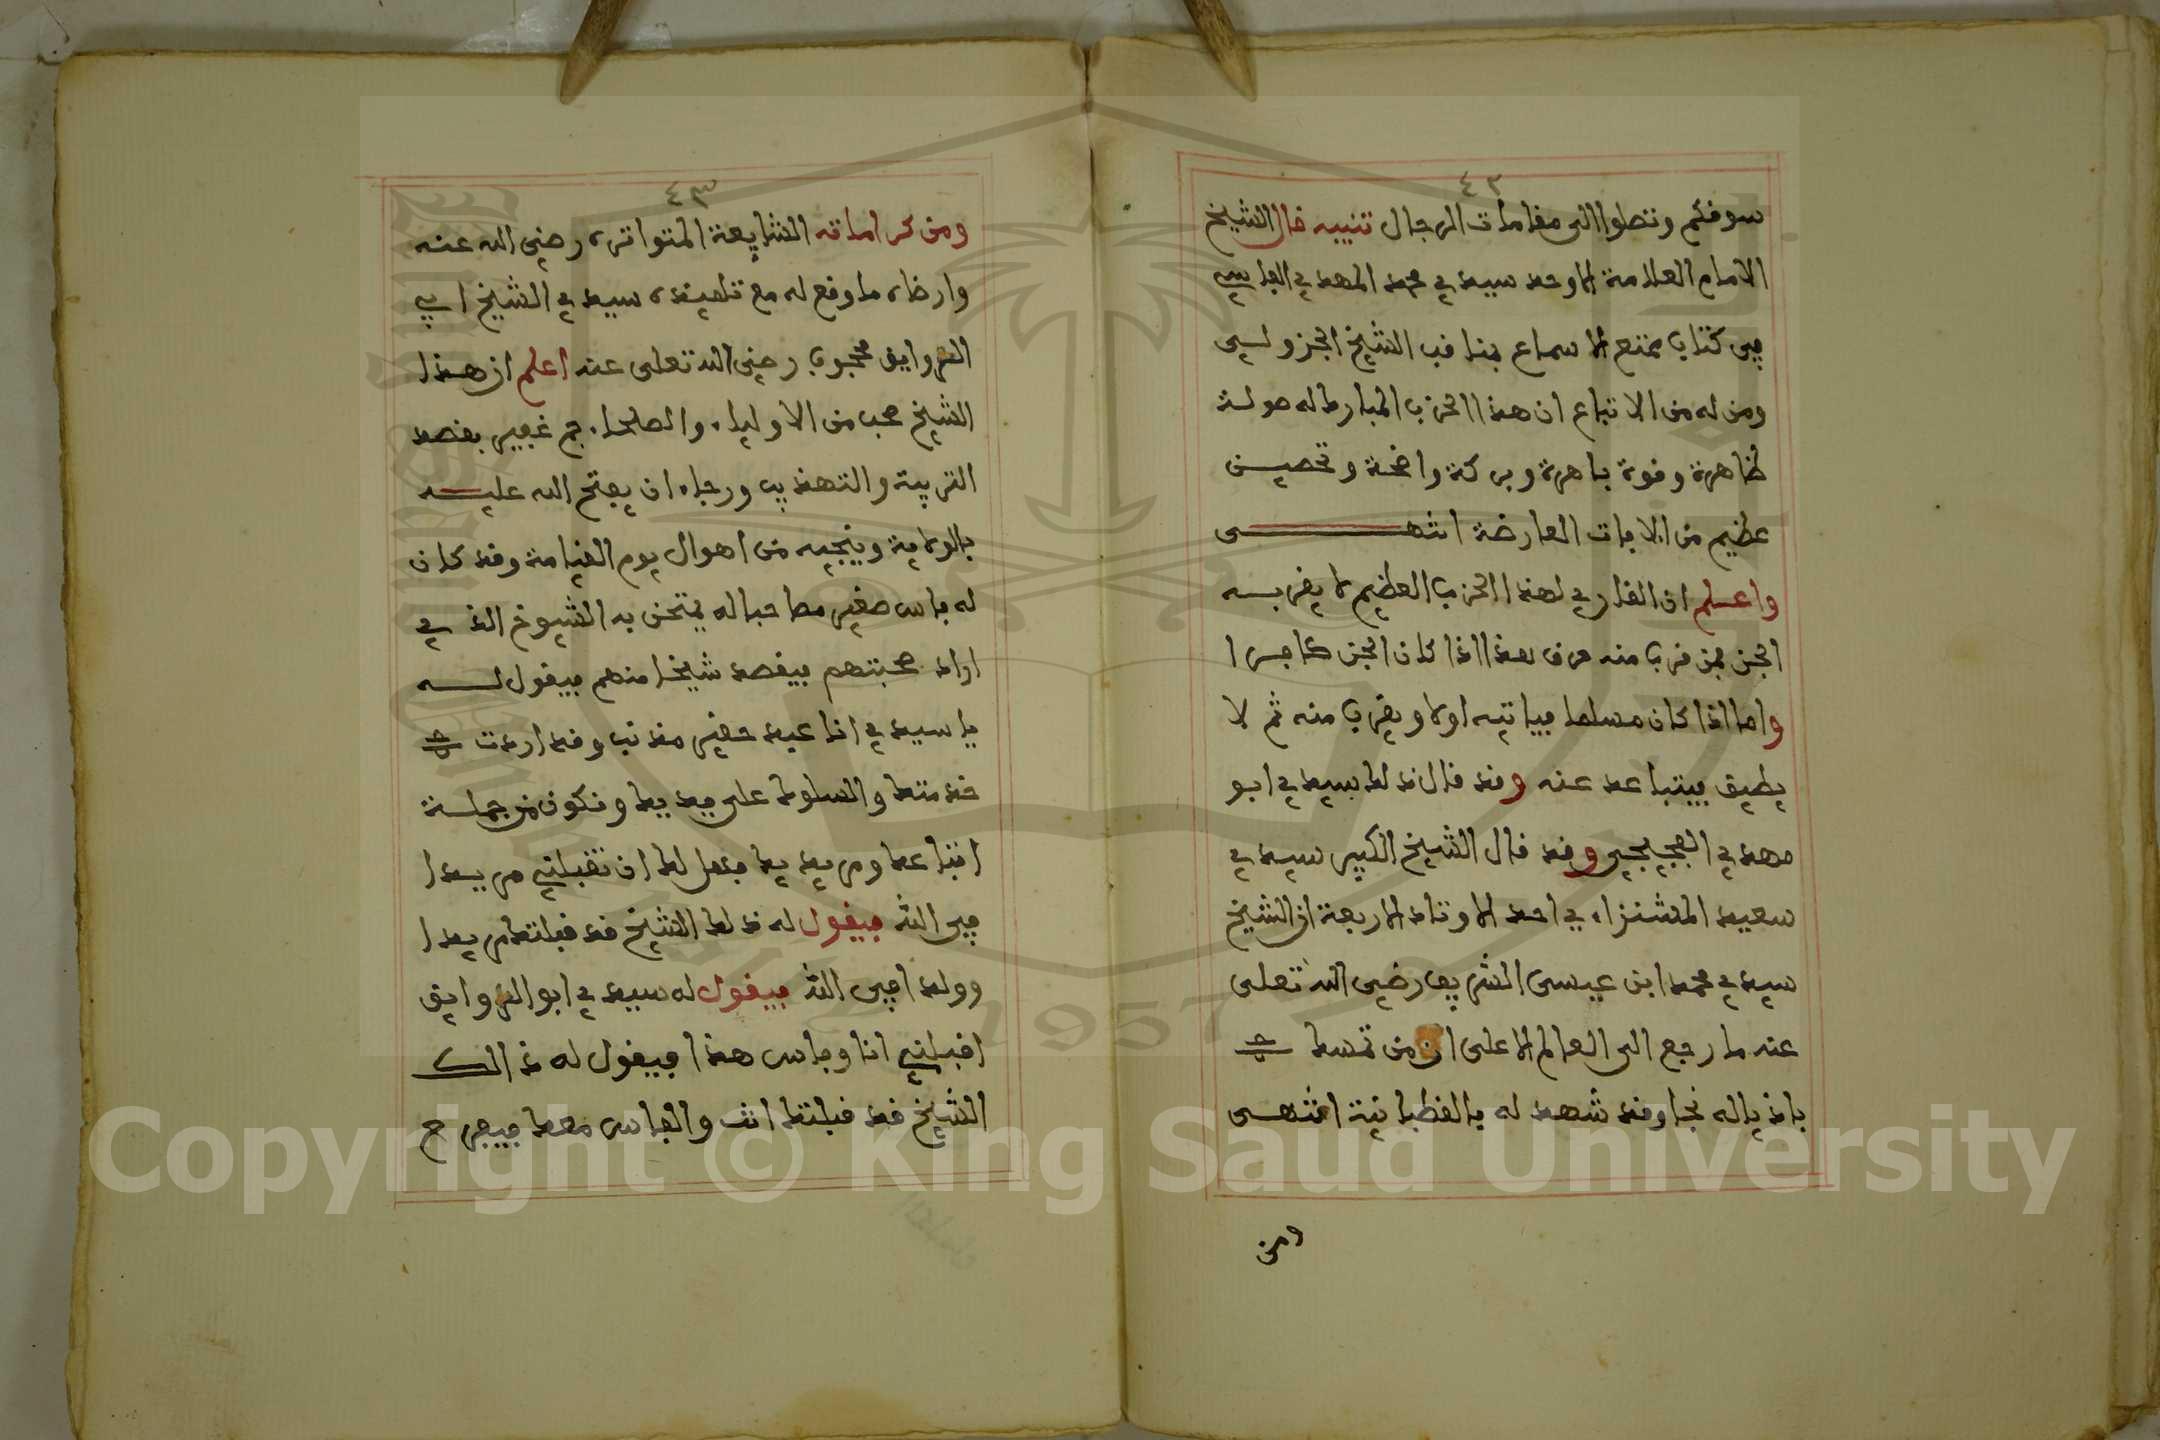 ٤٢
سوفكم وتصلوا الى مقامات الرجال تنبيه قال الشيخ
الامام العلامة الاوحد سيدي محمد المهدي الفاسي
في كتاب ممتع الاسماع بمناقب الشيخ الجزولي
ومن له من الاتباع ان هذا الحزب المبارك له صولة
ظاهرة وقوة باهرة وبركة واضحة وتحصين
عظيم من الافات العارضة انتهى
واعلم ان القاري لهذا الحزب العظيم لا يقربه
الجن فمن قرب منه حرق هذا اذا كان الجن كافرا
واما اذا كان مسلما فياتيه اولا ويقرب منه ثم لا
يطيق فيتباعد عنه وقد قال ذلك سيدي ابو
مهدي الفجيجي وقد قال الشيخ الكبير سيدي
سعيد المشنزاءي احد الاوتاد الاربعة ان الشيخ
سيدي محمد ابن عيسى الشريف رضي الله تعلى
عنه ما رجع الى العالم الاعلى ان من تمسك
باذياله نجا وقد شهد له بالقطبانية انتهى
ومن
٤٣
ومن كراماته الشايعة المتواترة رضي الله عنه
وارضاه ما وقع له مع تلميذه سيدي الشيخ ابي
الروايق محجوب رضي الله تعلى عنه اعلم ان هذا
الشيخ صحب من الاولياء والصلحاء جم غفير بقصد
التربية والتهذيب ورجاء ان يفتح الله عليه
بالولاية وينجيه من اهوال يوم القيامة وقد كان
له فاس صغير مصاحبا له يمتحن به الشيوخ الذي
اراد صحبتهم فيقصد شيخا منهم فيقول له
يا سيدي انا عبد حقير مذنب وقد اردت
خدمتك والسلوك على يديك ونكون من جملة
اتباعك ومريديك فهل لك ان تقبلني مريدا
في الله فيقول له ذلك الشيخ قد قبلتك مريدا
وولدا في الله فيقول له سيدي ابو الروايق
اقبلني انا وفاس هذا فيقول له ذالك
الشيخ قد قبلتك انت والفاس معك فيخرج
Copyright © King Saud University
1957